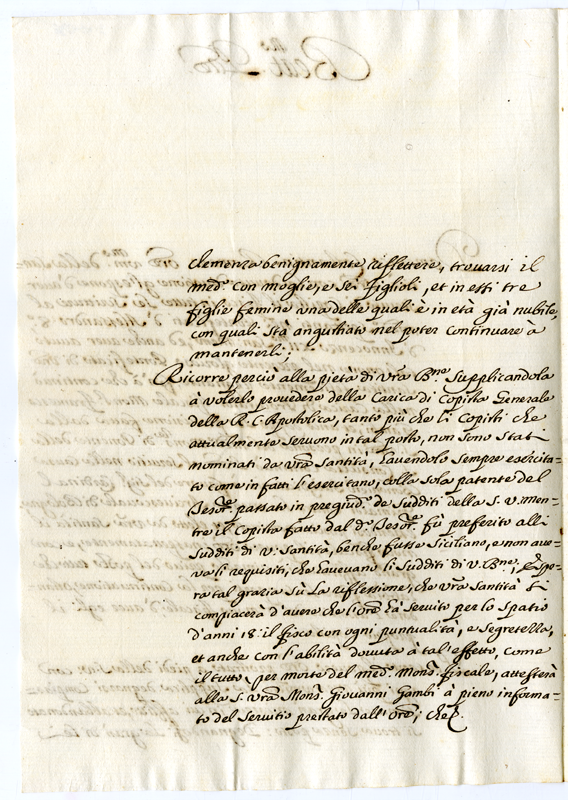 clemenza benignamente riflettere, trovarsi il
med.º con moglie, e sei figlioli, et in essi tre
figlie femine una delle quali è in età già nubile,
con quali stà angustiato nel poter continuare a
mantenerli;
Ricorre perciò alla pietà di Vrã B.ne supplicandola
à volerlo provedere della Carica di Copista Generale
della R. C. Apostolica, tanto più che li Copisti che
attualmente servono in tal posto, non sono stati
nominati da vrã Santità, havendolo sempre esercita=
to come in fatti l'esercitano, colla sola patente del
Tesor.e passato in pregiud.º de sudditi della S. V. men=
tre il Copista fatto dal d.º Tesor.e fù preferito alli
sudditi di V. Santità, benche fusse Siciliano, e non ave=
va li requisiti, che havevano li sudditi di V. B.ne, Spe=
ra tal grazia sù la riflessione, che vrã Santità si
compiacerà d'avere che l'Orẽ hà servito per lo spatio
d'anni 18: il fisco con ogni puntualità, e segretezza,
et anche con l'abilità dovuta à tal'effetto, come
il tutto, per morte del med.º Mons.r Fiscale, attesterà
alla S. Vrã Mons.r Giovanni Gambi à pieno informa=
to del servitio prestato dall'Orẽ; che